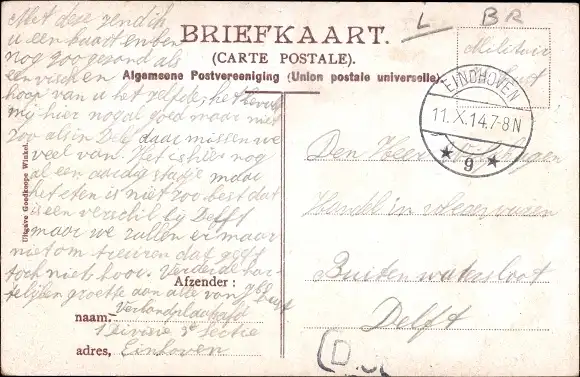 Met deze zend ik
u een kaart en ben
nog zoo gezond als
een visschen
hoop van u het zelfde, het bevalt
mij hier nogal goed maar niet
zoo als in Delf daar missen we
veel van. Het is hier nog
al een aardig stadje maar
het eten is niet zoo best dat
is een verschil bij Delft
maar we zullen er maar
niet om treuren dat geeft
toch niet hoor. Verder de har
telijken groetse aan alle van
BRIEFKAART.
(CARTE POSTALE).
Algemeene Postvereeniging (Union postale universelle).
Uitgave Goedkoope Winkel.
L BR
Militair
EINDHOVEN
11.X.14.7-8N
9
Den Heer
Handel in
Buitenwatersloot
Delft
Afzender:
naam.
1 Divisie 3e Sectie
adres, Einhoven
(D.